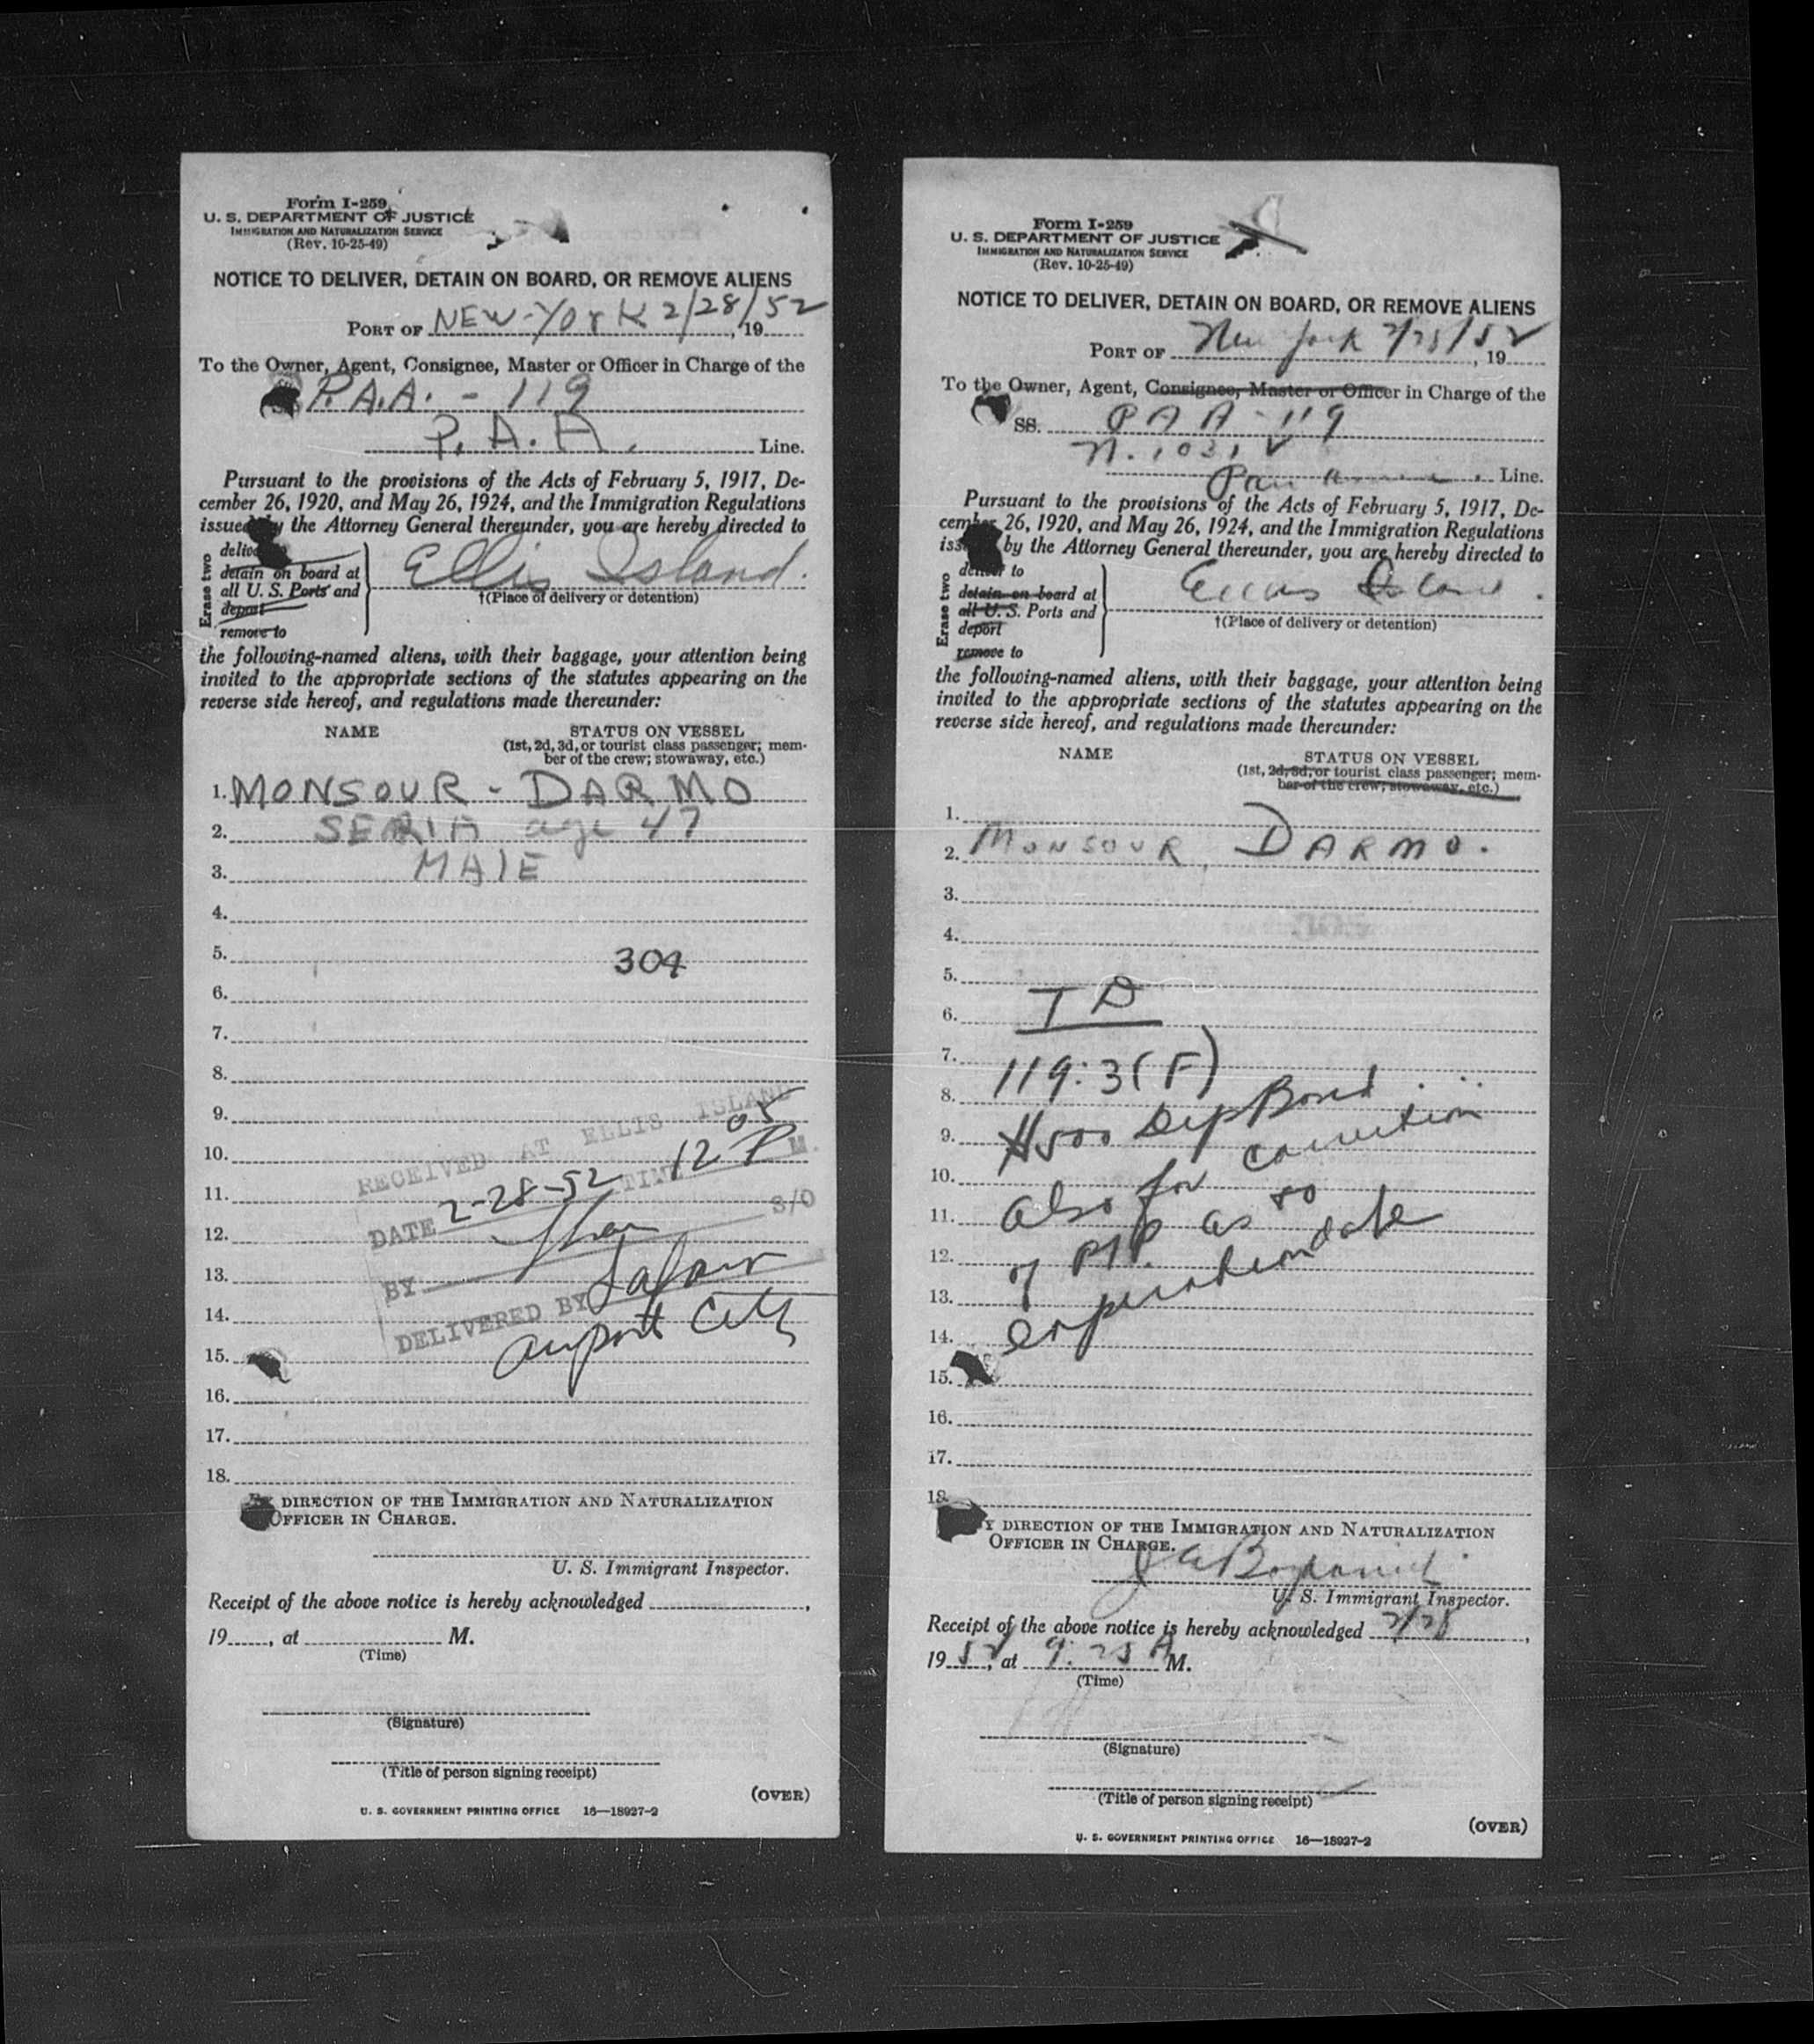 Form I-259
U. S. DEPARTMENT OF JUSTICE
IMMIGRATION AND NATURALIZATION SERVICE
(Rev. 10-25-49)
NOTICE TO DELIVER, DETAIN ON BOARD, OR REMOVE ALIENS
PORT OF NEW-YORK 2/28/52, 19
To the Owner, Agent, Consignee, Master or Officer in Charge of the
P.A.A. - 119
P.A.A. Line.
Pursuant to the provisions of the Acts of February 5, 1917, De-
cember 26, 1920, and May 26, 1924, and the Immigration Regulations
issued by the Attorney General thereunder, you are hereby directed to
Erase two
detain on board at
all U. S. Ports and
deport
remove to
Ellis Island.
†(Place of delivery or detention)
the following-named aliens, with their baggage, your attention being
invited to the appropriate sections of the statutes appearing on the
reverse side hereof, and regulations made thereunder:
NAME STATUS ON VESSEL
(1st, 2d, 3d, or tourist class passenger; mem-
ber of the crew; stowaway, etc.)
1. MONSOUR - DARMO
2. SERIA age 47
3. MALE
4.
5. 304
6.
7.
8.
9.
10.
11.
12.
13.
14.
15.
16.
17.
18.
RECEIVED AT ELLIS ISLAND
DATE 2-28-52 TIME 12 05 P M.
BY S/O
DELIVERED BY
Airport City
BY DIRECTION OF THE IMMIGRATION AND NATURALIZATION
OFFICER IN CHARGE.
U. S. Immigrant Inspector.
Receipt of the above notice is hereby acknowledged ,
19 , at M.
(Time)
(Signature)
(Title of person signing receipt)
(OVER)
U. S. GOVERNMENT PRINTING OFFICE 16—18927-2
Form I-259
U. S. DEPARTMENT OF JUSTICE
IMMIGRATION AND NATURALIZATION SERVICE
(Rev. 10-25-49)
NOTICE TO DELIVER, DETAIN ON BOARD, OR REMOVE ALIENS
PORT OF New York 2/28/52, 19
To the Owner, Agent, Consignee, Master or Officer in Charge of the
SS. PAA-119
N. 1031 V
Pan Line.
Pursuant to the provisions of the Acts of February 5, 1917, De-
cember 26, 1920, and May 26, 1924, and the Immigration Regulations
issued by the Attorney General thereunder, you are hereby directed to
Erase two
deliver to
detain on board at
all U. S. Ports and
deport
remove to
Ellis Island.
†(Place of delivery or detention)
the following-named aliens, with their baggage, your attention being
invited to the appropriate sections of the statutes appearing on the
reverse side hereof, and regulations made thereunder:
NAME STATUS ON VESSEL
(1st, 2d, 3d, or tourist class passenger; mem-
ber of the crew; stowaway, etc.)
1.
2. MONSOUR, DARMO.
3.
4.
5.
6. TD
7. 119:3(F)
8.
9. $500 Dep Bond
10. also for
11. of as to
12.
13. expiration date
14.
15.
16.
17.
18.
BY DIRECTION OF THE IMMIGRATION AND NATURALIZATION
OFFICER IN CHARGE.
U. S. Immigrant Inspector.
Receipt of the above notice is hereby acknowledged 2/28,
19 52, at 9:25 A M.
(Time)
(Signature)
(Title of person signing receipt)
(OVER)
U. S. GOVERNMENT PRINTING OFFICE 16—18927-2